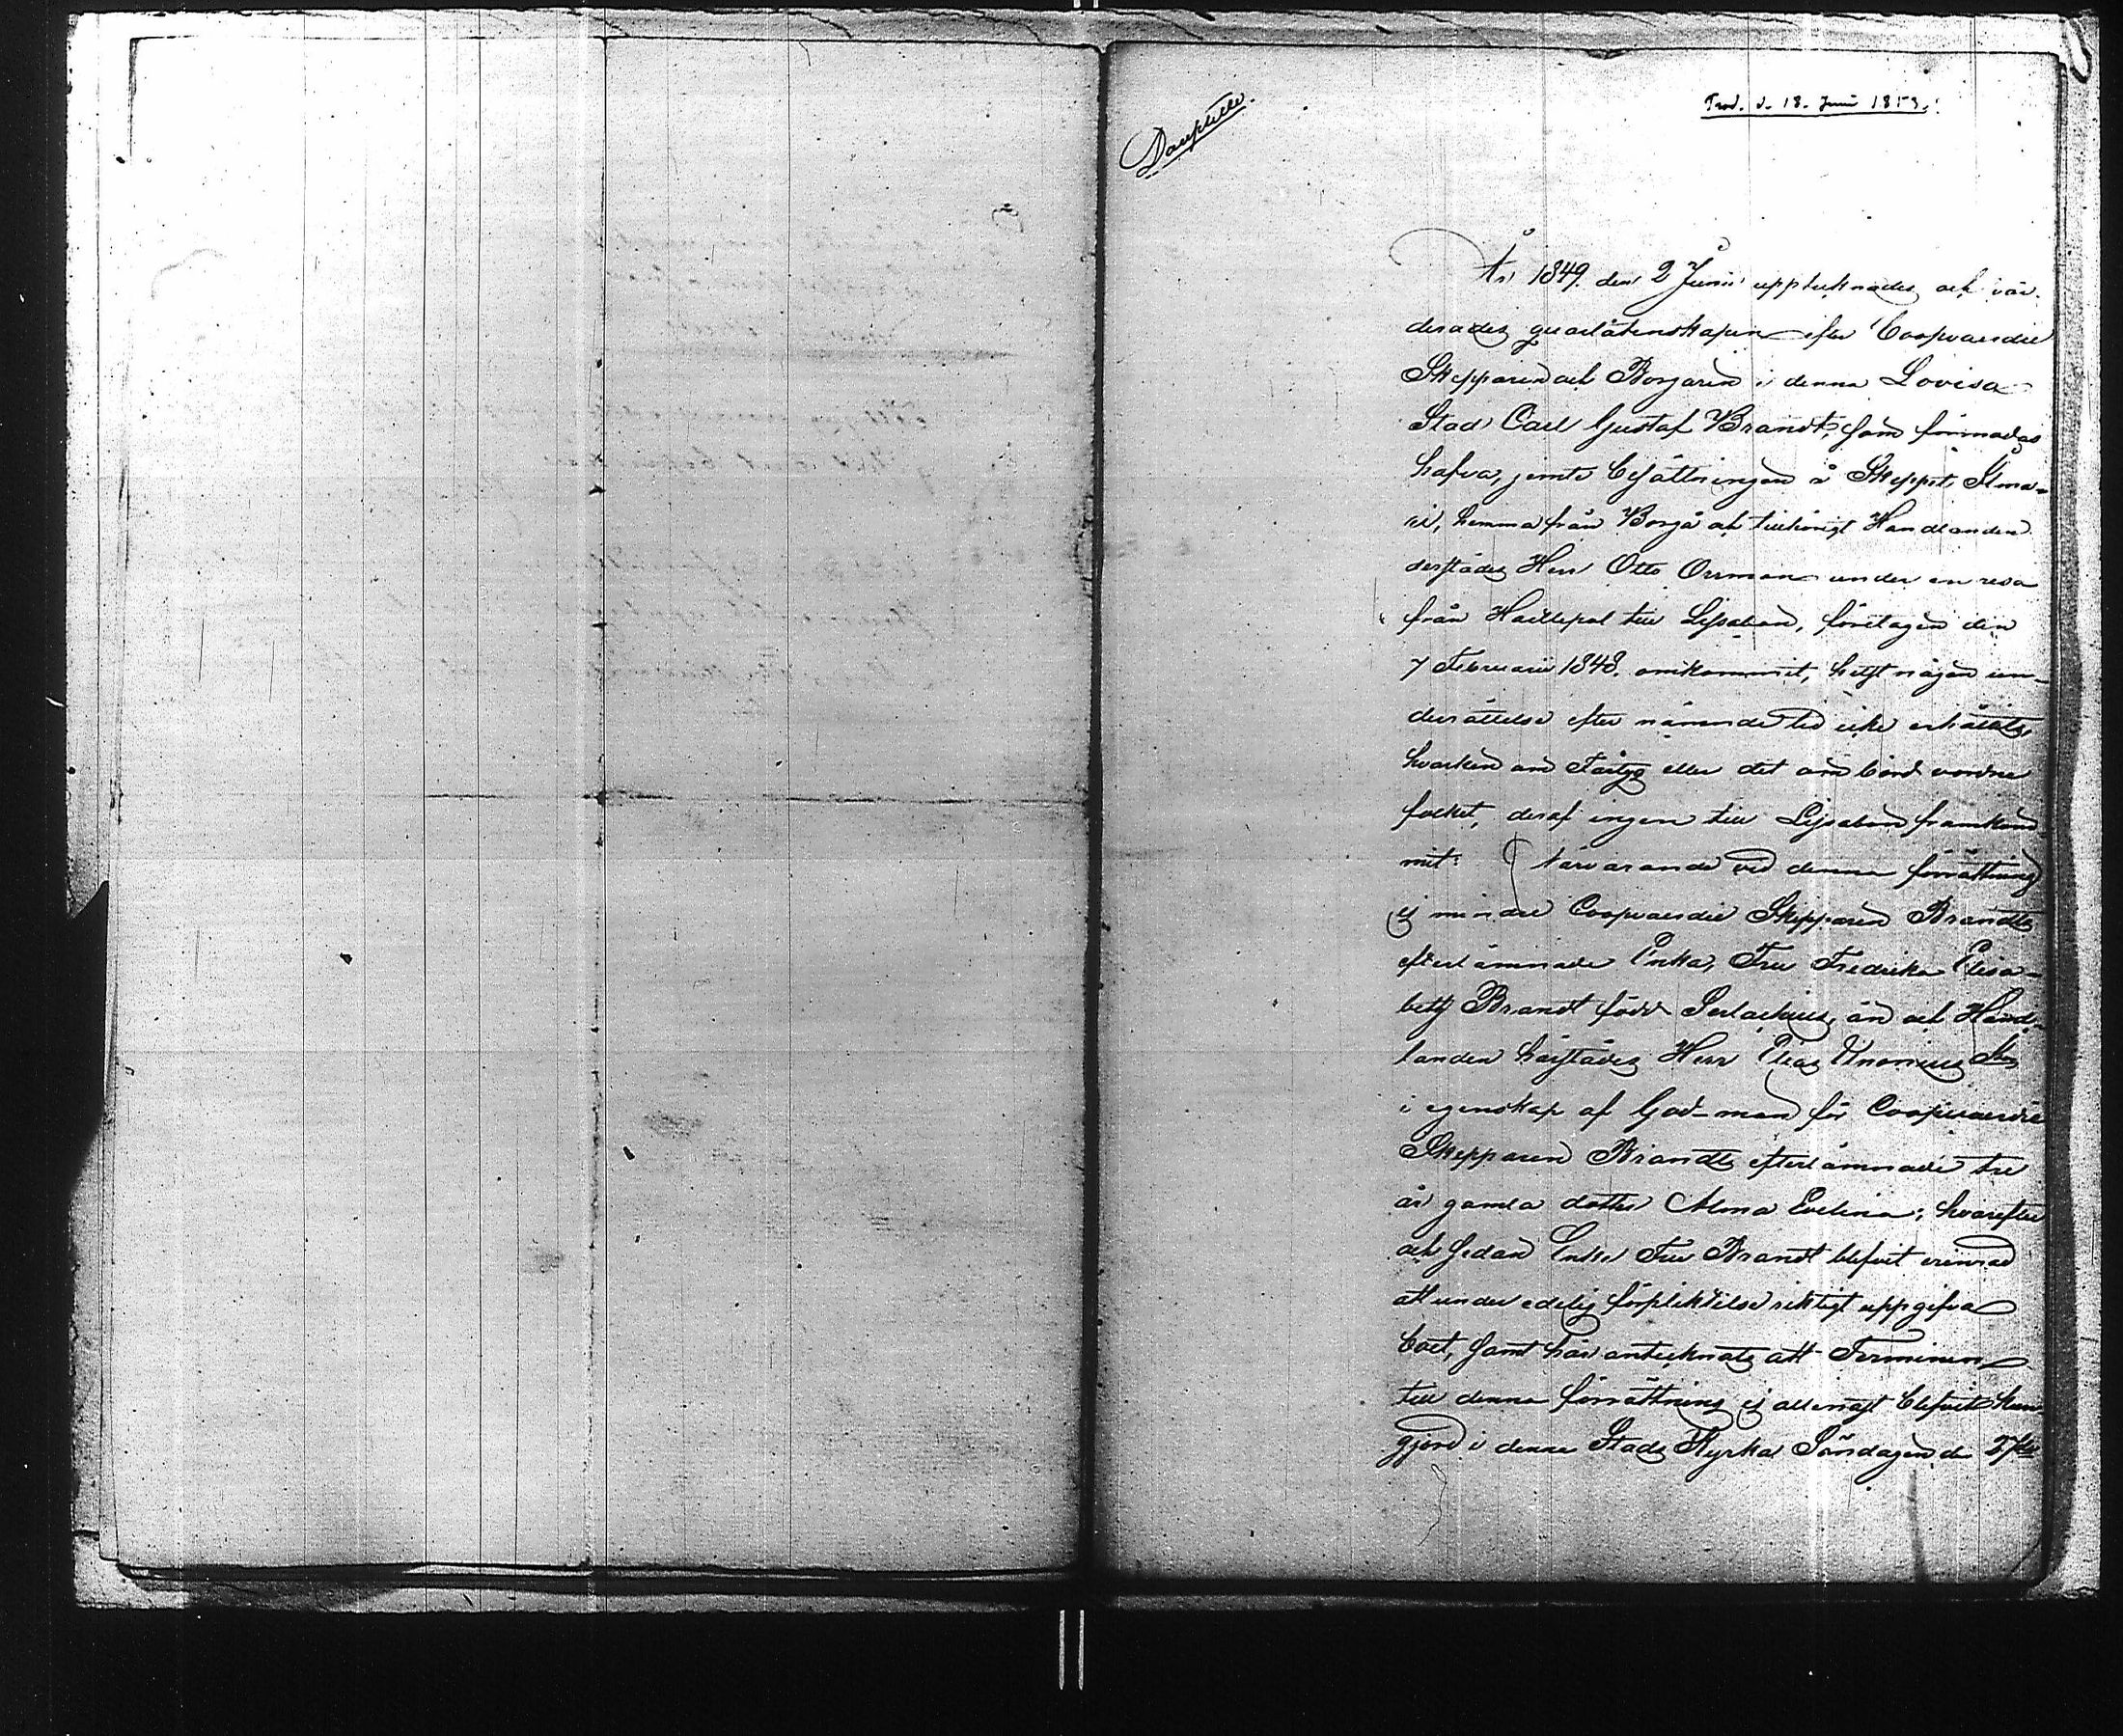 Prod. d. 18. Juni 1853.
Douplett.
År 1849. den 2 Junii upptecknades och vär-
derades quarlåtenskapen efter Coopvaerdie
Skepparen och Borgaren i denna Lovisa
Stad Carl Gustaf Brandt, som förmodas
hafva, jemte besättningen å Skeppet Ilma-
ri, hemma från Borgå och tillhörigt Handlanden
derstädes Herr Otto Orrman under en resa
från Hartlepol till Lissabon, företagen den
7 Februarii 1848. omkommit, helst någon un-
derrättelse efter nämnde tid icke erhållits,
hvarken om Fartyg eller det om bord vordne
folket, deraf ingen till Lissabon framkom-
mit. Närvarande vid denna förrättning
ej mindre Coopvaerdie Skepparen Brandts
efterlämnade Enka, Fru Fredrika Elisa-
beth Brandt född Serlachius, än och Hand-
landen härstädes Herr Elias Unonius
i egenskap af God-man för Coopvaerdie
Skepparen Brandts efterlämnade tre
år gamla dotter Alma Evelina; hvarefter
och sedan Enke Fru Brandt blifvit erinrad
att under edelig förpliktelse riktigt uppgifva
boet, samt här antecknats att Terminen
till denna förrättning ej allenast blifvit kun-
gjord i denna Stads Kyrka Söndagen den 27de